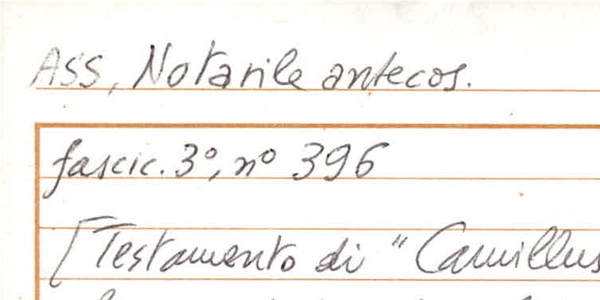 ASS, Notarile antecos.
fascic. 3°, n° 396
[Testamento di "Camillus